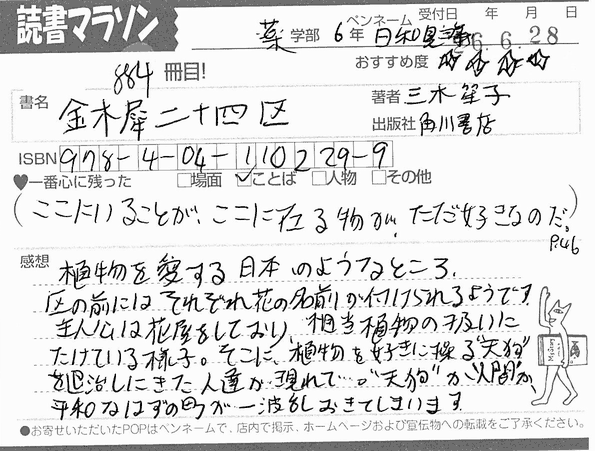 読書マラソン
ペンネーム 受付日 年 月 日
薬 学部 6年 日和見 6.6.28
おすすめ度 ☆☆☆☆
884 冊目!
書名 金木犀二十四区
著者 三木笙子
出版社 角川書店
ISBN 978-4-04-110229-9
♥一番心に残った □場面 ☑ことば □人物 □その他
(ここにいることが、ここに在る物が、ただ好きなのだ。
P.46
感想
植物を愛する日本のようなところ。
区の前にはそれぞれ花の名前が付けられるようです
主人公は花屋をしており、相当植物の扱いに
たけている様子。そこに、植物を好きに操る"天狗"
を退治しにきた人達が現れて…。"天狗"か"人間"か、
平和なはずの町が一波乱おきてしまいます
●お寄せいただいたPOPはペンネームで、店内で掲示、ホームページおよび宣伝物への転載をご了承ください。